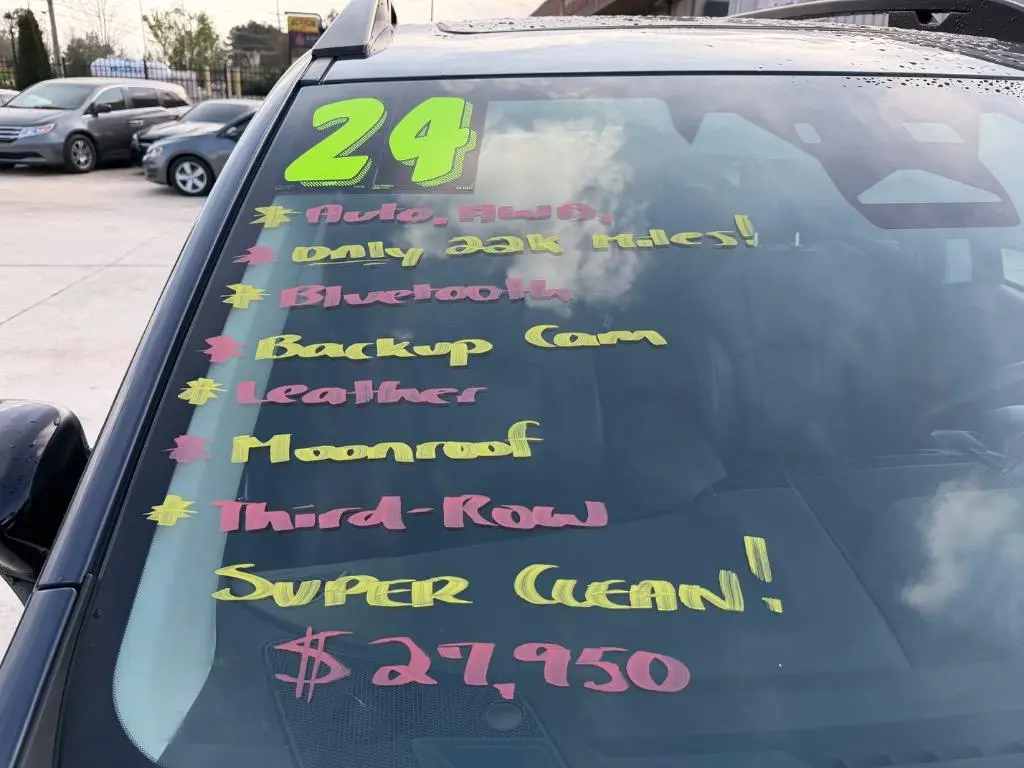 24
* Auto, AWD,
* Only 22K Miles!
* Bluetooth
* Backup Cam
* Leather
* Moonroof
* Third-Row
SUPER CLEAN!
$27,950